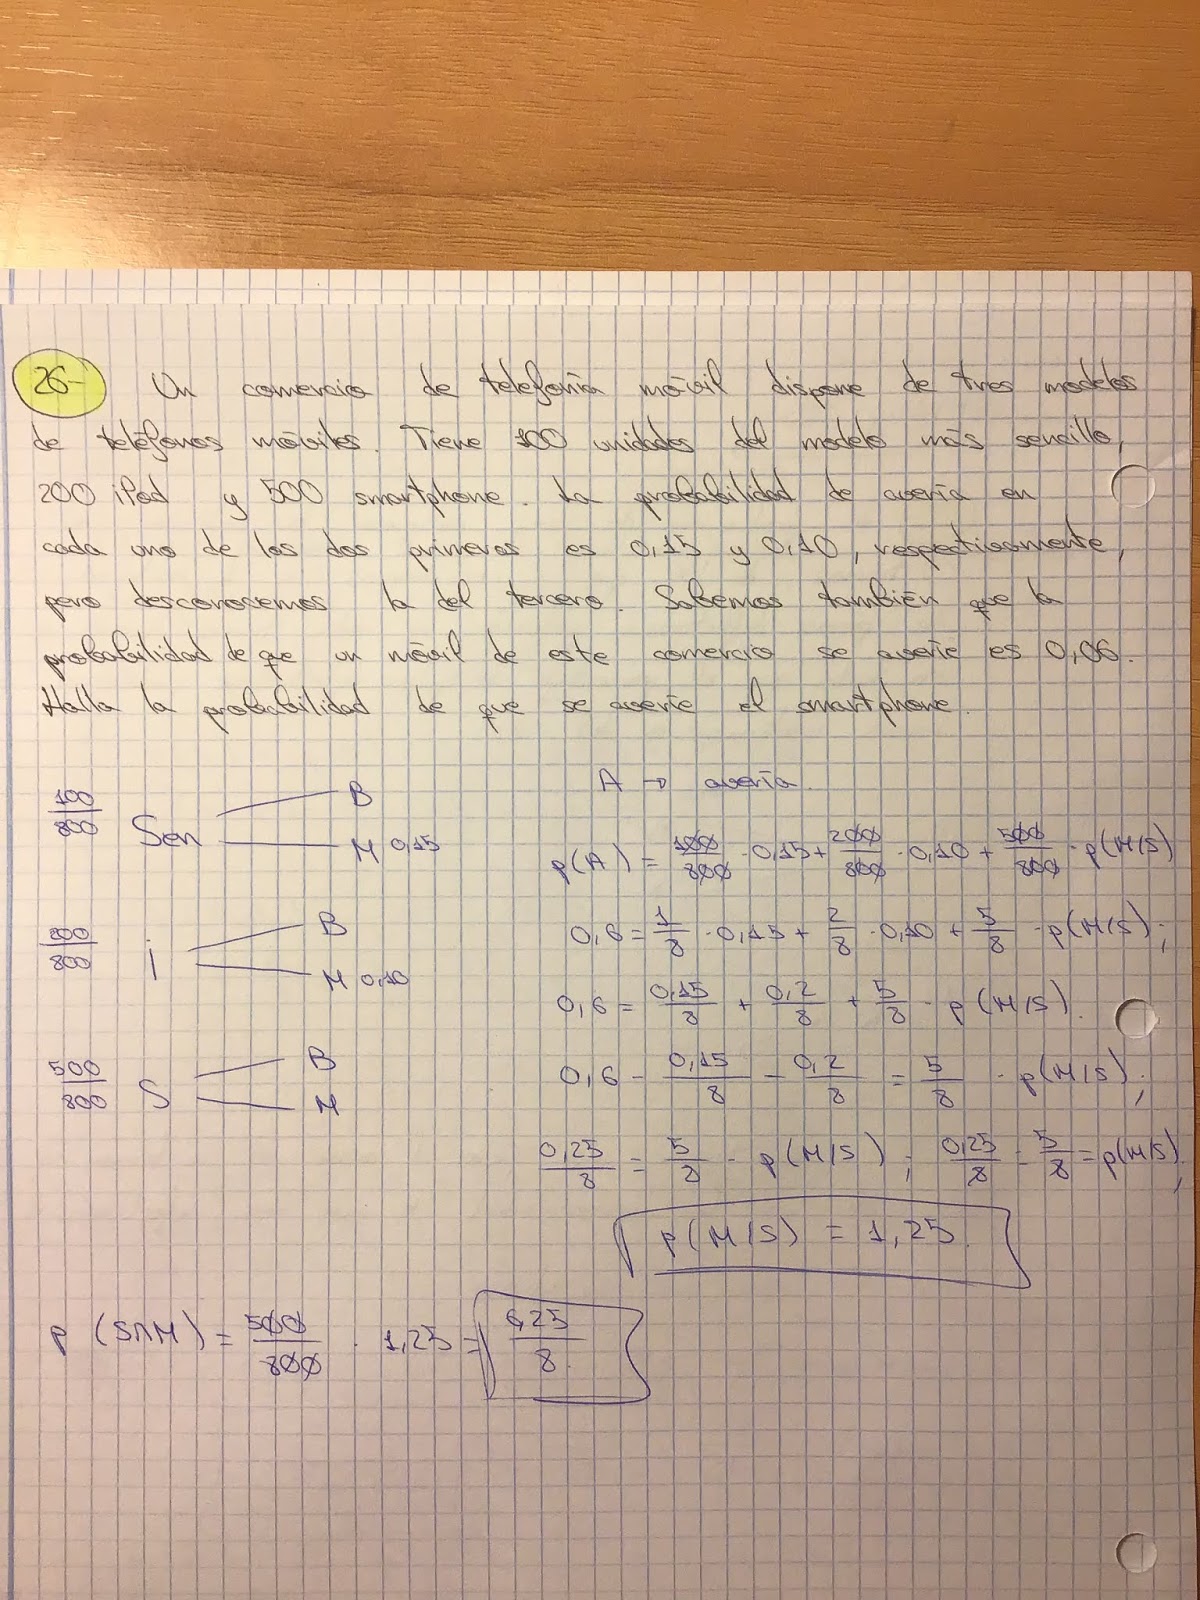 26- Un comercio de telefonía móvil dispone de tres modelos
de teléfonos móviles. Tiene 100 unidades del modelo más sencillo,
200 iPod y 500 smartphone. La probabilidad de avería en
cada uno de los dos primeros es 0,15 y 0,10, respectivamente,
pero desconocemos la del tercero. Sabemos también que la
probabilidad de que un móvil de este comercio se averíe es 0,06.
Halla la probabilidad de que se averíe el smartphone.
A → avería.
100/800 Sen
B
M 0,15
p(A) = 100/800 · 0,15 + 200/800 · 0,10 + 500/800 · p(M/S)
200/800 i
B
M 0,10
0,6 = 1/8 · 0,15 + 2/8 · 0,10 + 5/8 · p(M/S);
0,6 = 0,15/8 + 0,2/8 + 5/8 · p(M/S).
500/800 S
B
M
0,6 - 0,15/8 - 0,2/8 = 5/8 · p(M/S);
0,25/8 = 5/8 · p(M/S); 0,25/8 - 5/8 = p(M/S);
p(M/S) = 1,25.
p(S∩M) = 500/800 · 1,25 = 6,25/8.